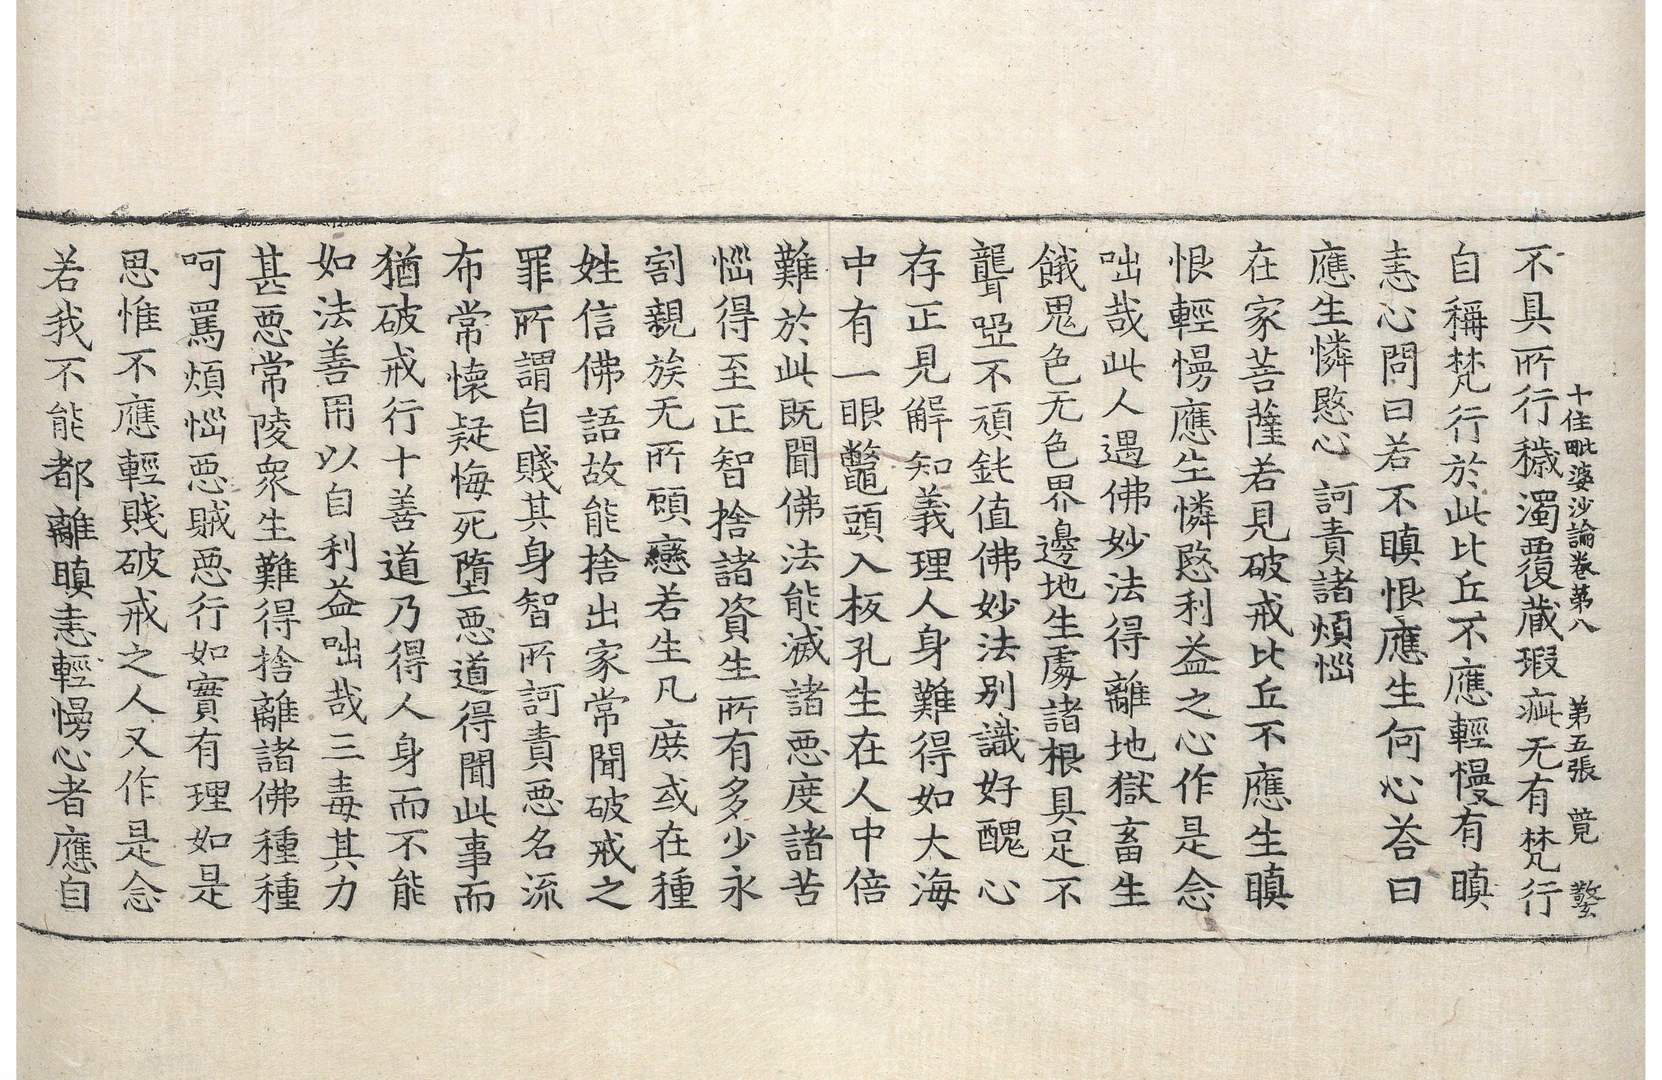 十住毗婆沙論卷第八 第五張 竟
不具所行穢濁覆藏瑕疵无有梵行
自稱梵行於此比丘不應輕慢有瞋
恚心問曰若不瞋恨應生何心荅曰
應生憐愍心 訶責諸煩惱
在家菩薩若見破戒比丘不應生瞋
恨輕慢應生憐愍利益之心作是念
咄哉此人遇佛妙法得離地獄畜生
餓鬼色无色界邊地生處諸根具足不
聾啞不頑鈍值佛妙法別識好醜心
存正見解知義理人身難得如大海
中有一眼鼈頭入板孔生在人中倍
難於此既聞佛法能滅諸惡度諸苦
惱得至正智捨諸資生所有多少永
割親族无所顧戀若生凡庶或在種
姓信佛語故能捨出家常聞破戒之
罪所謂自賤其身智所訶責惡名流
布常懷疑悔死墮惡道得聞此事而
猶破戒行十善道乃得人身而不能
如法善用以自利益咄哉三毒其力
甚惡常陵衆生難得捨離諸佛種種
呵罵煩惱惡賊惡行如實有理如是
思惟不應輕賤破戒之人又作是念
若我不能都離瞋恚輕慢心者應自